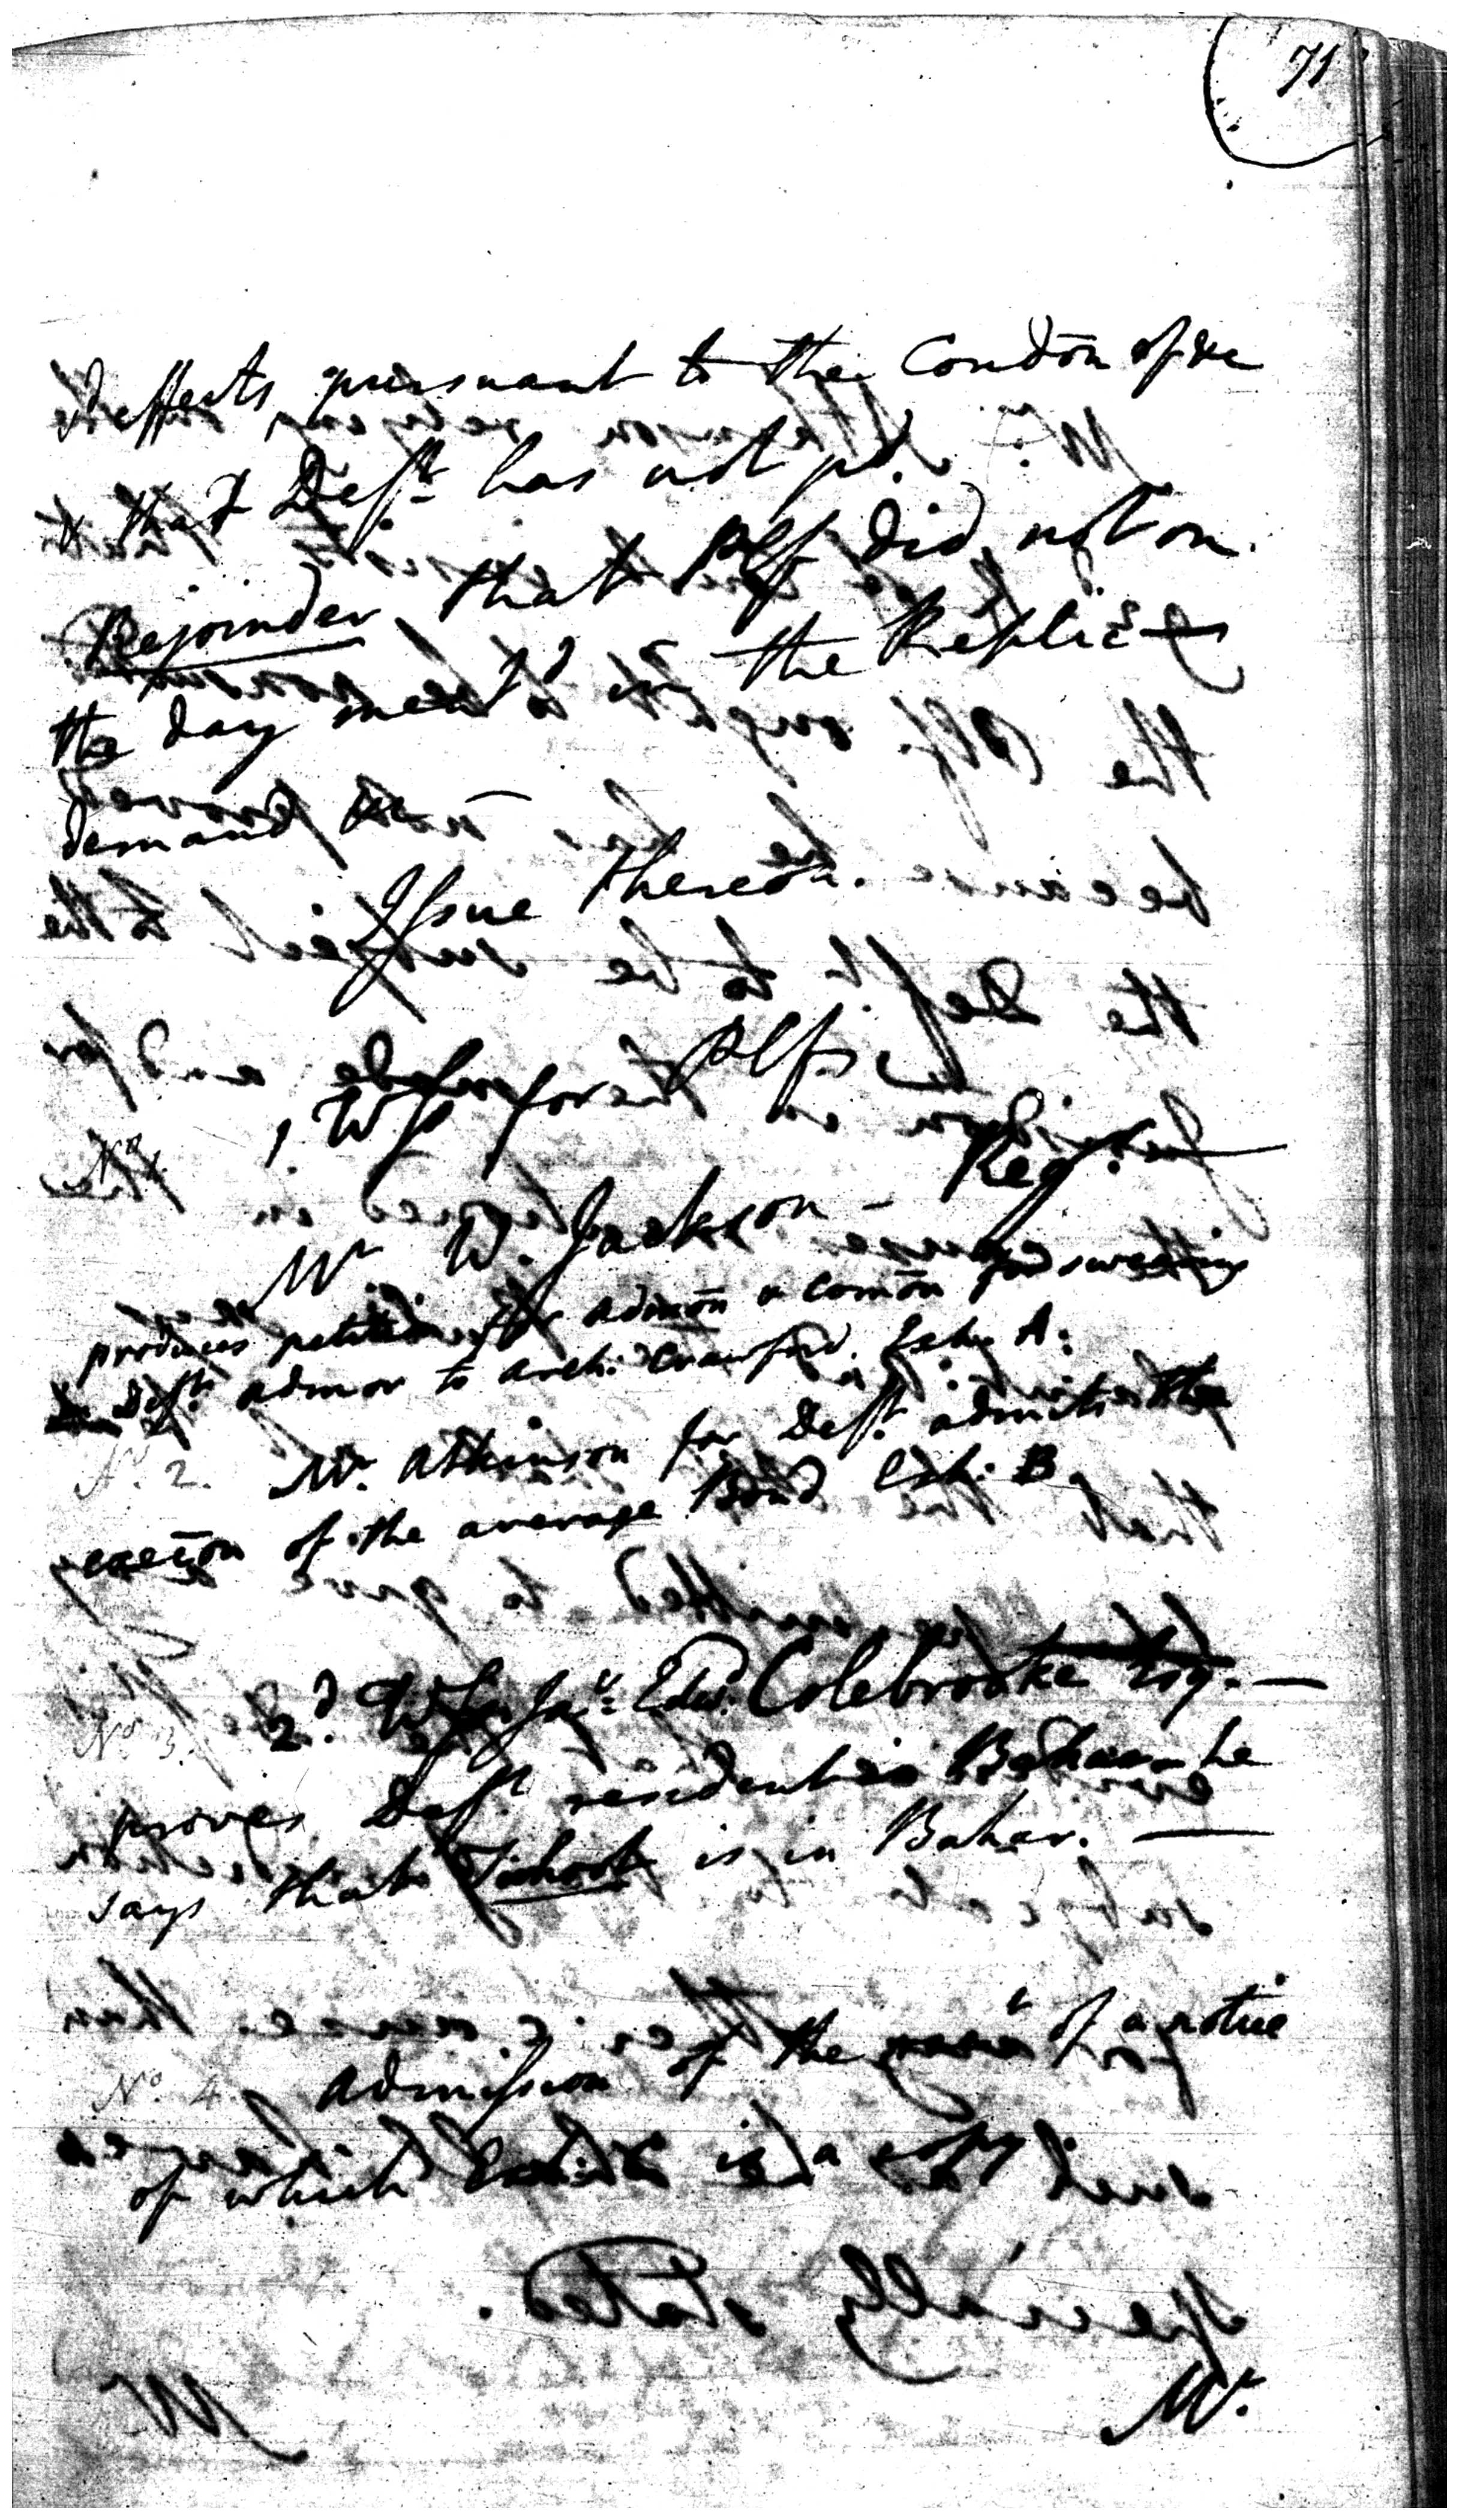 71
& effects pursuant to the Condōn of &c
& that Deft. has not pd.
Rejoinder, that Plf. did not on
the day mentd. in the Replicn.
demand &c —
Issue thereon.
Plfs.
No. 1. 1 Wss for
Mr W. Jackson — Regr. —
produces petition for admōn & comōn for swearing
Deft. admor to Archd. Crawford. Exh. A.
No. 2. Mr. Atkinson for Deft. admits the
execōn of the average Bond Exh. B.
No. 3. 2d. Wss Jas. Edwd. Colebrooke Esq. —
proves Deft. resident in Bahar he
says that Tirhoot is in Bahar. —
No. 4. Admission of the of a notice
of which Exh. is a copy
Mr.